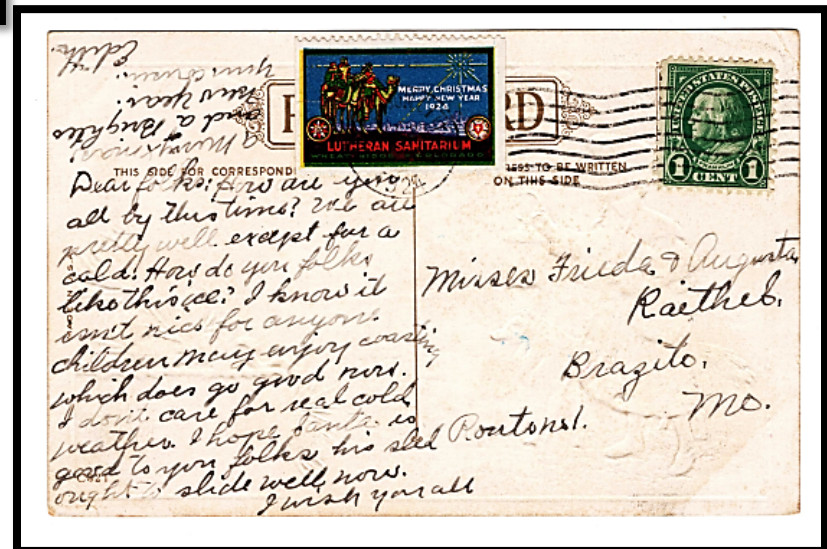 POST CARD
MERRY CHRISTMAS
HAPPY NEW YEAR
1924
LUTHERAN SANITARIUM
WHEAT RIDGE COLORADO
UNITED STATES POSTAGE
1 CENT 1
THIS SIDE FOR CORRESPONDENCE
ADDRESS TO BE WRITTEN
ON THIS SIDE
Dear folks: How are you
all by this time? We are
pretty well except for a
cold. How do you folks
like this ice? I know it
isn't nice for anyone
children may enjoy coasting
which does go good now.
I don't care for real cold
weather. I hope Santa is
good to you folks his sled
ought to slide well now.
I wish you all
a Merry Xmas
and a Bright
New Year.
Your cousin.
Edith.
Misses Frieda & Augusta
Raithel.
Brazito.
Mo.
Route No 1.